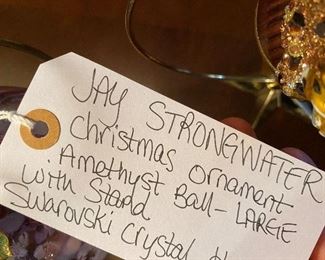 JAY STRONGWATER
Christmas Ornament
Amethyst Ball - LARGE
with Stand
Swarovski Crystal